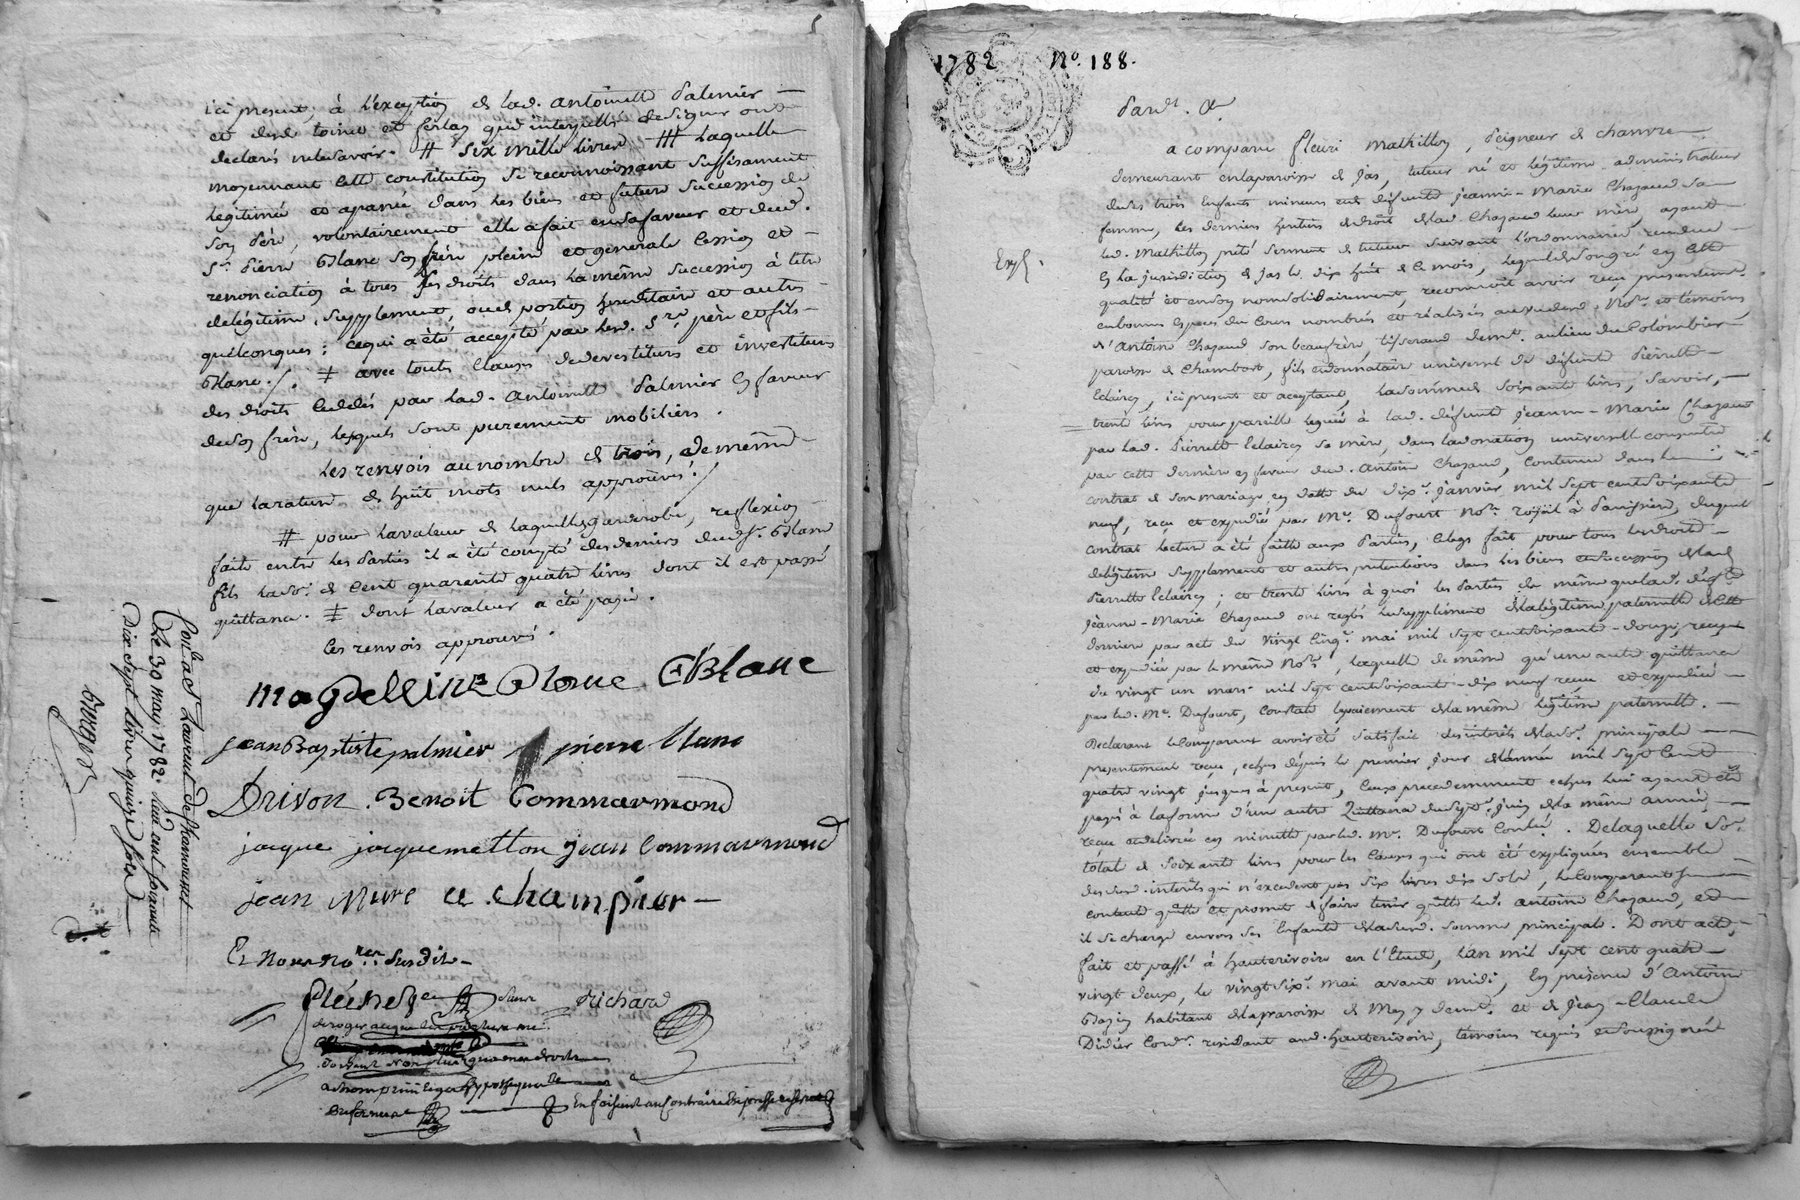 ici present, à l'exception de lad. antoinette Palmier
et desd. toinet et ferlay qui interpellés de signer ont
declaré ne le savoir. # six mille livres # laquelle
moyennant cette constitution se reconnoissant suffisament
legitimée et apanée dans les biens et future succession de
son père, volontairement elle a fait en sa faveur et dud.
Sr. pierre Blanc son frère pleine et generale cession et
renonciation à tous ses droits dans la même succession à titre
de legitime, supplement, ou de portion hereditaire et autres
quélconques; ce qui a été accepté par lesd. Srs. père et fils
Blanc ./. ‡ avec toutes clauses de devestiture et investiture
des droits cuddés par lad. antoinette Palmier en faveur
de son frère, lesquels sont purement mobiliers.
les renvois au nombre de trois, de même
que la rature de huit mots nuls approuvés ./
# pour la valeur de laquelle garderobe, reflexion
faite entre les Parties il a été compté des deniers dud. Sr. Blanc
fils la So. de cent quarante quatre livres dont il est passé
quittance. ‡ dont la valeur a été payée.
les renvois approuvés.
magdelline Blanc CBlanc
jean Baptiste palmier pierre blanc
Drivon. Benoit Commarmond
jacque jacquemetton jean Commarmond
jean Mure ce. champier
Et nous nores. susdits
richard
En faisant au contraire
Conlé a St. Laurent de Chamousset
Le 30 may 1782. Reçu cent soixante
Dix Sept livres quinze sols
1782 No. 188.
Pardt. &.
a comparu fleuri mathillon, seigneur de chamre
demeurant en la paroisse de Jas, tuteur né et légitime administrateur
de ses trois Enfants mineurs et de défunte jeanne-Marie Chazaud sa
femme, les derniers heritiers de droit de lad. Chazaud leur mère, ayant
led. Mathillon prêté serment de tuteur suivant l'ordonnance rendue
Exp.
en la jurisdiction de Jas le dix huit de ce mois, lequel de son gré en cette
qualité et en son nom solidairement, reconnoit avoir reçu presentement
en bonnes especes du cours nombrés et réalisés au vu desd. Nore. et témoins
d'Antoine Chazaud son beaufrère, tisserand demt. au lieu du Colombier
paroisse de Chambost, fils et donataire universel de défunte Pierrette
Eclaircy, ici present et aceptant, la somme de soixante livres, savoir,
trente livres pour pareille leguée à lad. défunte jeanne-Marie Chazaud
par lad. Pierrette Eclaircy sa mère, dans la donation universelle consentie
par cette dernière en faveur dud. Antoine Chazaud, contenue dans le
contrat de son mariage en datte du dixe. janvier mil sept cent soixante
neuf, reçu et expedié par Me. Dufourt Nore. royal à Panissière, duquel
contrat lecture a été faite aux Parties, le legs fait pour tous les droits
de légitime supplement et autres pretentions dans les biens et succession de lad.
Pierrette Eclaircy; et trente livres à quoi les Parties de même que lad. défte.
Jeanne-Marie Chazaud ont reglés le supplément de la légitime paternelle de cette
derniere par acte du vingt cinqe. mai mil sept cent soixante-douze, reçu
et expedié par le même Nore., laquelle de même qu'une autre quittance
du vingt un mars mil sept cent soixante-dix neuf reçue et expediée
par led. Me. Dufourt, constate le paiement de la même légitime paternelle.
Declarant le Comparant avoir été satisfait des interêts de la So. principale
presentement reçue, echus depuis le premier jour de l'année mil sept cent
quatre vingt jusques à present, ceux precedemment echus lui ayant été
payés à la forme d'une autre Quittance du septe. juin de la même année
reçue et delivrée en minutte par led. Me. Dufourt Conlé. De laquelle So.
total de soixante livres pour les causes qui ont été expliquées ensemble
desd. interêts qui n'excedent pas six livres dix sols, le Comparant se
contente quitte et promet de faire tenir quitte led. Antoine Chazaud, et
il se charge envers ses Enfants de lad. somme principale. Dont acte,
fait et passé à hauterivoire en l'Etude, l'an mil sept cent quatre
vingt deux, le vingt sixe. mai avant midi, En présence d'Antoine
Bazin habitant de la paroisse de Mey y demt. et de Jean-Claude
Didier Cordr. residant aud. hauterivoire, témoins requis et soussignés